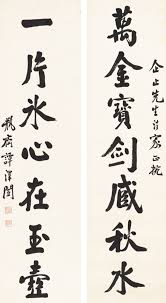 萬金寶劍藏秋水
企止先生法家正捥
一片冰心在玉壺
瓶齋譚澤闓